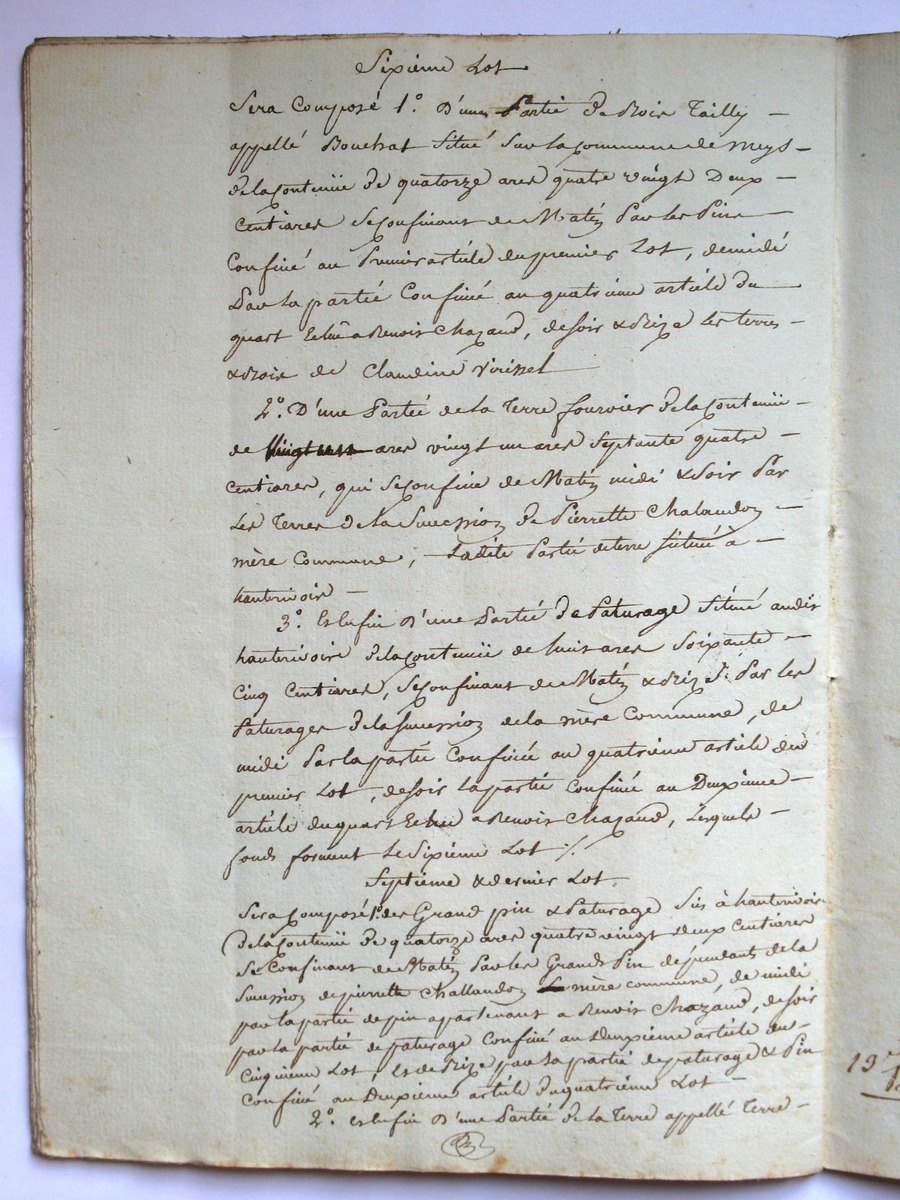 Sixième Lot
Sera Composé 1.° D'une Partie de Bois Tailly
appellé Bouchat Situé Sur la Commune de meys
de la Contenüe de quatorze ares quatre vingt Deux
Centiares Se Confinant de Matin Par les Pins
Confiné au Premier article du premier Lot, de midi
Par la partie Confiné au quatrième article du
quart Echu a Benoit Chazaud, de soir & Bize les terres
& Bois de Claudine Virissel
2.° D'une Partie de la Terre fournier de la Contenüe
de ares vingt un ares Septante quatre
Centiares, qui Se Confine de Matin midi & Soir Par
Les Terres de la Sucession de Pierrette Chalandon
mère Commune, Ladite Partie de terre Située à
hauterivoire
3.° Et Enfin D'une Partie de Paturage Situé audit
hauterivoire de la Contenüe de huit ares Soixante
Cinq Centiares, Se Confinant de Matin & Bize Par les
Paturages de la Sucession de la mère Commune, de
midi Par la partie Confinée au quatrième article du
premier Lot, de soir la partie Confiné au Deuxième
article du quart Echu a Benoit Chazaud, Lesquels
fonds forment Le Sixième Lot ./.
Septième & dernier Lot
Sera Composé 1.° des Grand pin & Paturage Sis à hauterivoire
de la Contenüe de quatorze ares quatre vingt deux Centiares
Se Confinant de Matin Par les Grands Pin dépendants de la
Sucession de pierrette Challandon mère commune, de midi
par la partie de pin apartenant a Benoit Chazaud, de soir
par la partie de paturage Confiné au Deuxième article du
Cinquième Lot, et de Bize par la partie de paturage & Pin
Confiné au Deuxième article du quatrième Lot
2.° et Enfin D'une Partie de la Terre appellé Terre
19